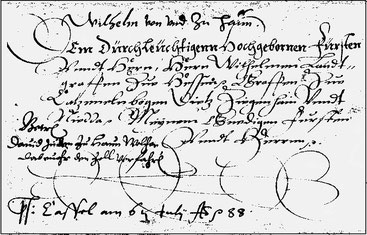 Wilhelm von und Zu Haun
Dem Durchleuchtigenn Hochgebornen Fürsten
Vnndt Herrn, Hern Wilhelmen Landt-
graffen Zue Hessenn, Graffen Zue
Catzenelnbogen, Dietz Ziegenhain Vnndt
Nidda, Meynem Gnedigen Fürsten
Vnndt Herrnn
David Juden Zu Haun
das er ihm den Zoll
Cassel am 6 Julij Aº 88.